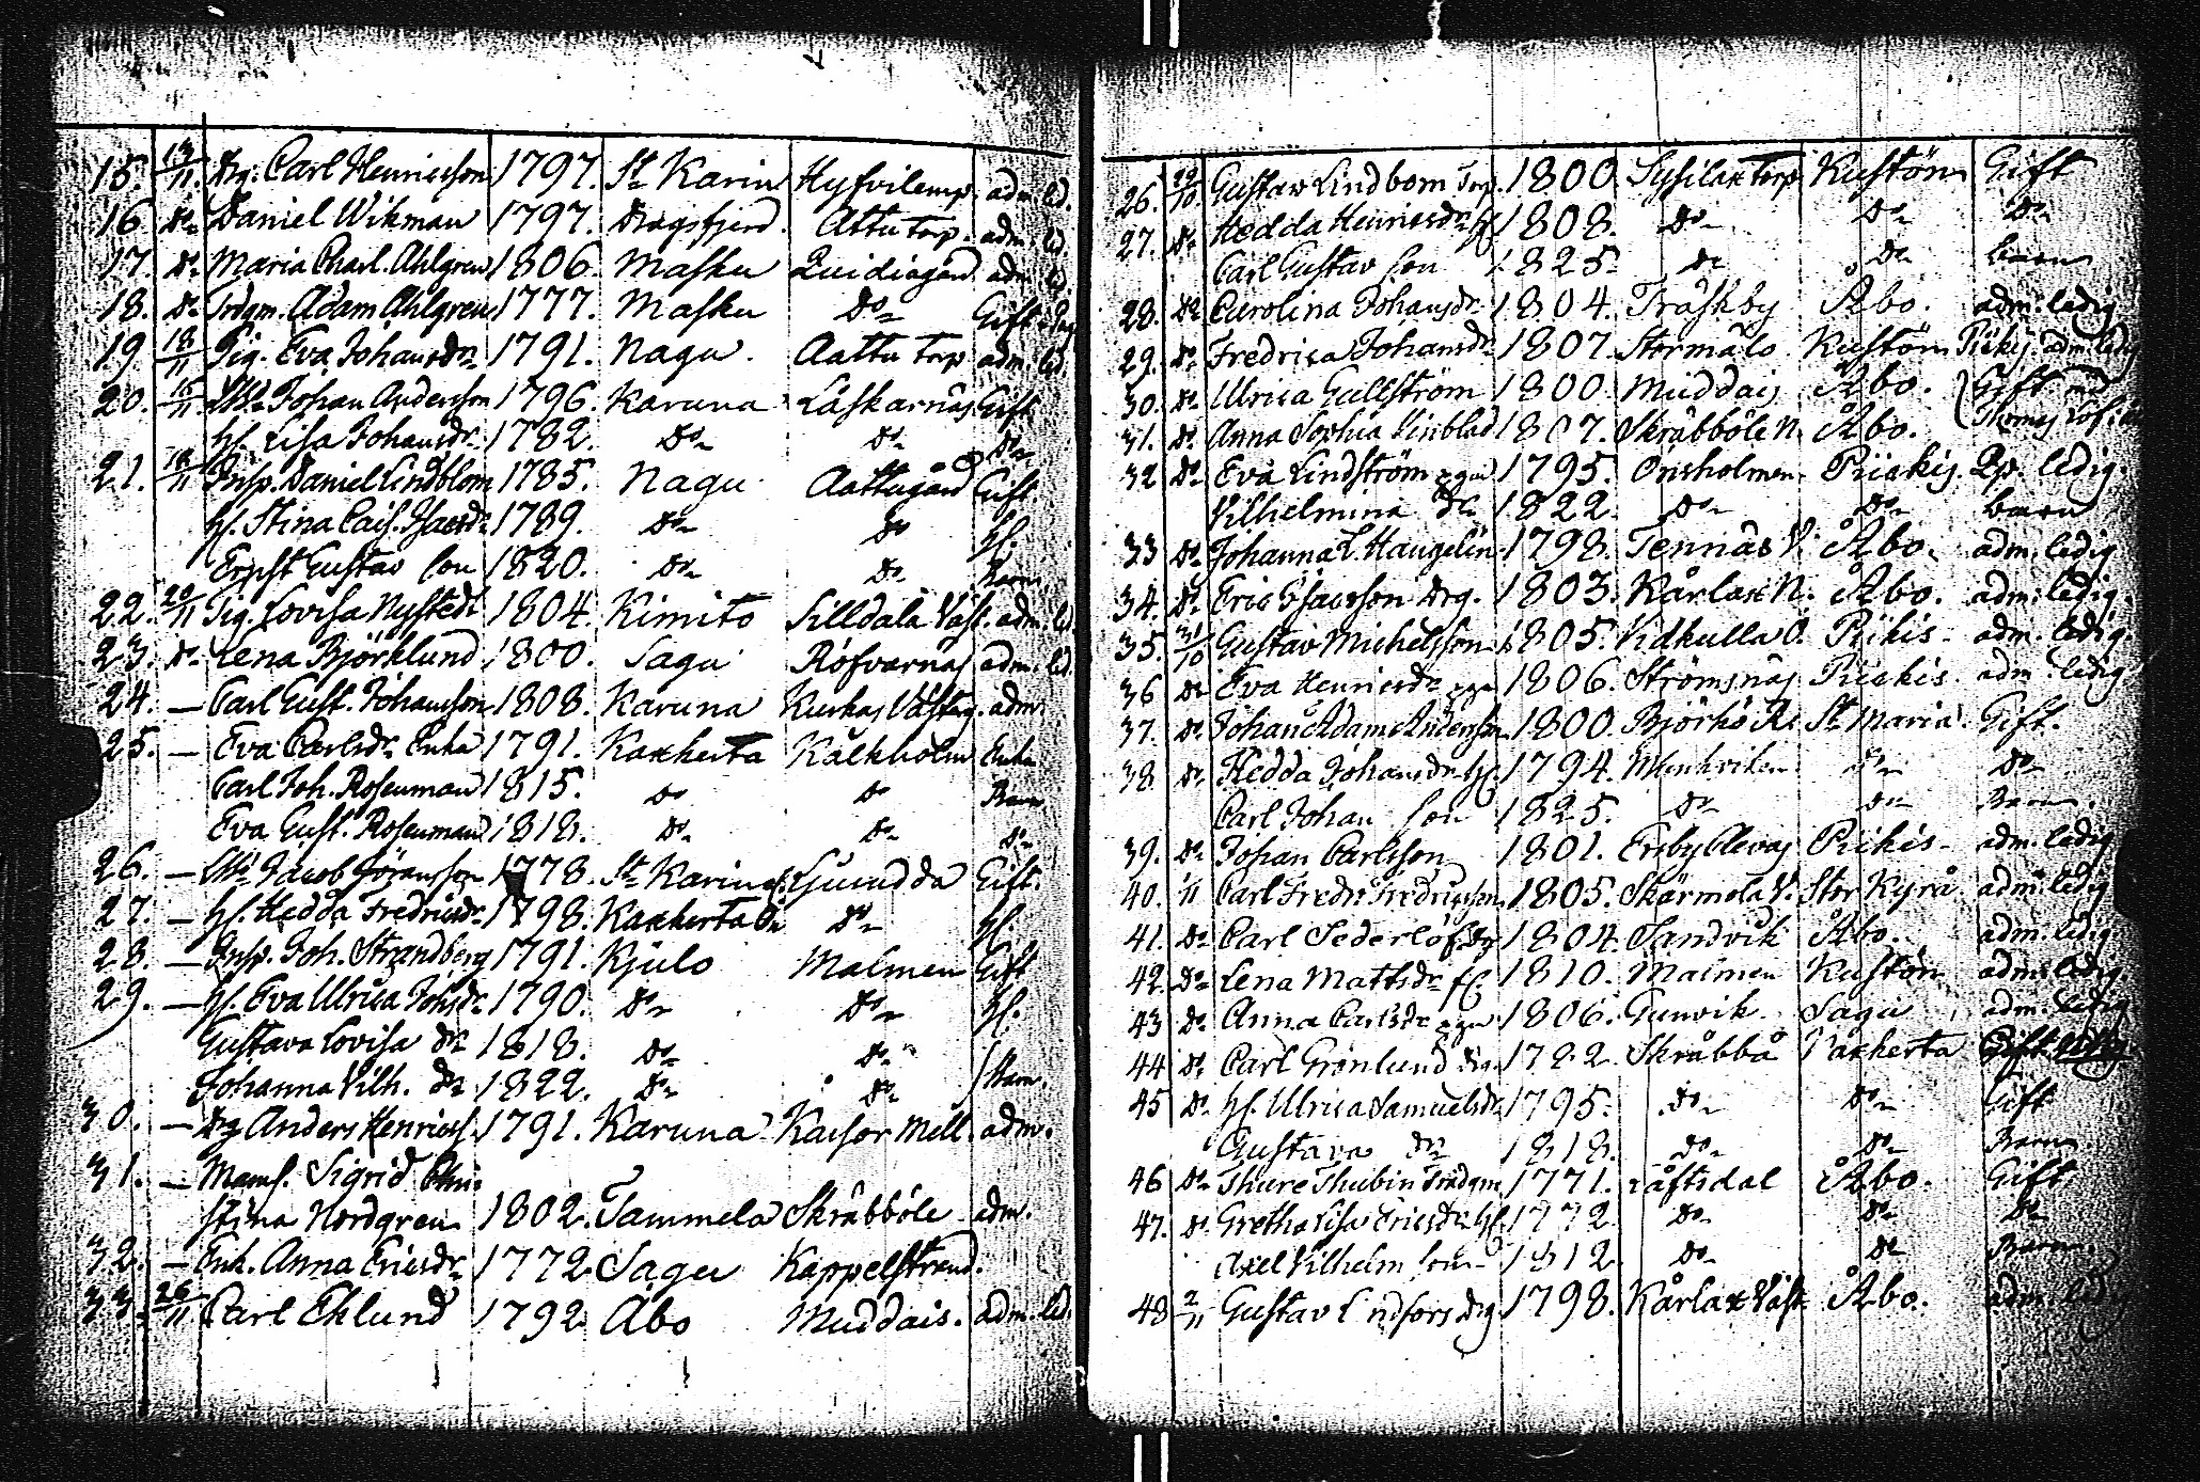 15. 13/11. Drg. Carl Henricsson 1797. St. Karin Hyfvilemp. adm. led.
16 Do Daniel Wikman 1797. Dragsfjerd. Attu torp. adm. led.
17. Do Maria Charl. Ahlgren 1806. Masku Quidiagård adm. led.
18. Do Trdgm. Adam Ahlgren 1777. Masku Do Gift
19 18/11 Pig. Eva Johansdr 1791. Nagu. Aattu torp adm. led.
20. 15/11 Johan Andersson 1796. Karuna Laskarnäs Gift
hf. Lisa Johansdr 1782. Do Do Do
21. 18/11 Insp. Daniel Lindblom 1785. Nagu Aattugård Gift.
hf. Stina Cais. Isacsdr 1789. Do Do hf.
Ernst Gustav son 1820. Do Do Barn
22. 20/11 Pig. Lovisa Nystedt 1804. Kimito Silldala Väst. adm. led.
23. Do Lena Björklund 1800. Sagu Röfvarnäs adm. led.
24. — Carl Gust. Johansson 1808. Karuna Kurkas Västerg. adm.
25. — Eva Carlsdr Enka 1791. Kaxkerta Kalkholm Enka
Carl Joh. Rosenman 1815. Do Do Barn
Eva Gust. Rosenman 1818. Do Do Do
26. — Jacob Göransson 1778. St. Karins Ljuudda Gift.
27. — hf. Hedda Fredricsdr. 1798. Kaxkerta Do hf.
28. — Insp. Joh. Strandberg 1791. Kjulo Malmen Gift
29. — hf. Eva Ulrica Johsdr. 1790. Do Do hf.
Gustava Lovisa Dr 1818. Do Do
Johanna Vilh. Dr 1822. Do Do Barn.
30. — Drg Anders Henricss. 1791. Karuna Kaisor Mell. adm.
31. — Mams. Sigrid Chri-
stina Nordgren 1802. Tammela Skräbböle adm.
32. — Enk. Anna Ericsdr 1772 Sagu Kappelstrand.
33. 26/11 Carl Eklund 1792 Åbo Muddais. adm. led.
26. 29/10. Gustav Lindbom Torp. 1800. Sysilax Torp Kustön Gift
27. Do Hedda Henricsdr hf. 1808. Do Do Do
Carl Gustav son 1825. Do Do barn
28. Do Carolina Johansdr 1804. Träskby Åbo. adm. ledig
29. Do Fredrica Johansdr 1807. Stormälo Kustön Piikis. adm. ledig
30. Do Ulrica Gullström 1800. Muddais Åbo. Gift med
31. Do Anna Sophia Vinblad 1807. Skräbböle N. Åbo. Thomas
32 Do Eva Lindström pga 1795. Önisholmen Piickis. Qp. ledig.
Vilhelmina Dr 1822. Do Do barn
33 Do Johanna L. Haugelin 1798. Tennäs V. Åbo. adm. ledig
34. Do Eric Isacsson Drg. 1803. Kårlax N. Åbo. adm. ledig.
35. 31/10 Gustav Michelsson 1805. Vidkulla Ö. Piikis adm. ledig.
36 Do Eva Henricsdr pga 1806. Strömsnäs Piickis. adm. ledig
37. Do Johan Adam Anderson 1800. Björkö St. Maria. Gift.
38. Do Hedda Johansdr hf. 1794. Munkviken Do Do
Carl Johan son 1825. Do Do Barn.
39. Do Johan Carlsson 1801. Ersby Clevas Piikis adm. ledig
40. 1/11 Carl Fredr. Fredricsson 1805. Skärmola V. Stor Kyrå. adm. ledig
41. Do Carl Sederlöf Drg 1804. Sandvik Åbo. adm. ledig.
42. Do Lena Mattsdr 1810. Malmen Kustön adm. ledig.
43 Do Anna Carlsdr pga 1806. Gunvik Sagu adm. ledig
44 Do Carl Grönlund Drg. 1792 Skräbbå Kaxkerta Gift
45 Do hf. Ulrica Samuelsdr 1795. Do Do Gift
Gustava Dr 1818. Do Do Barn.
46 Do Thure Thubin Trädgm 1771. Låftsdal Åbo. Gift
47. Do Gretha Lisa Ericsdr hf. 1772 Do Do Do
Axel Vilhelm son 1812 Do Do Barn.
48 2/11 Gustav Lindfors Drg 1798. Kårlax Väst Åbo. adm. led